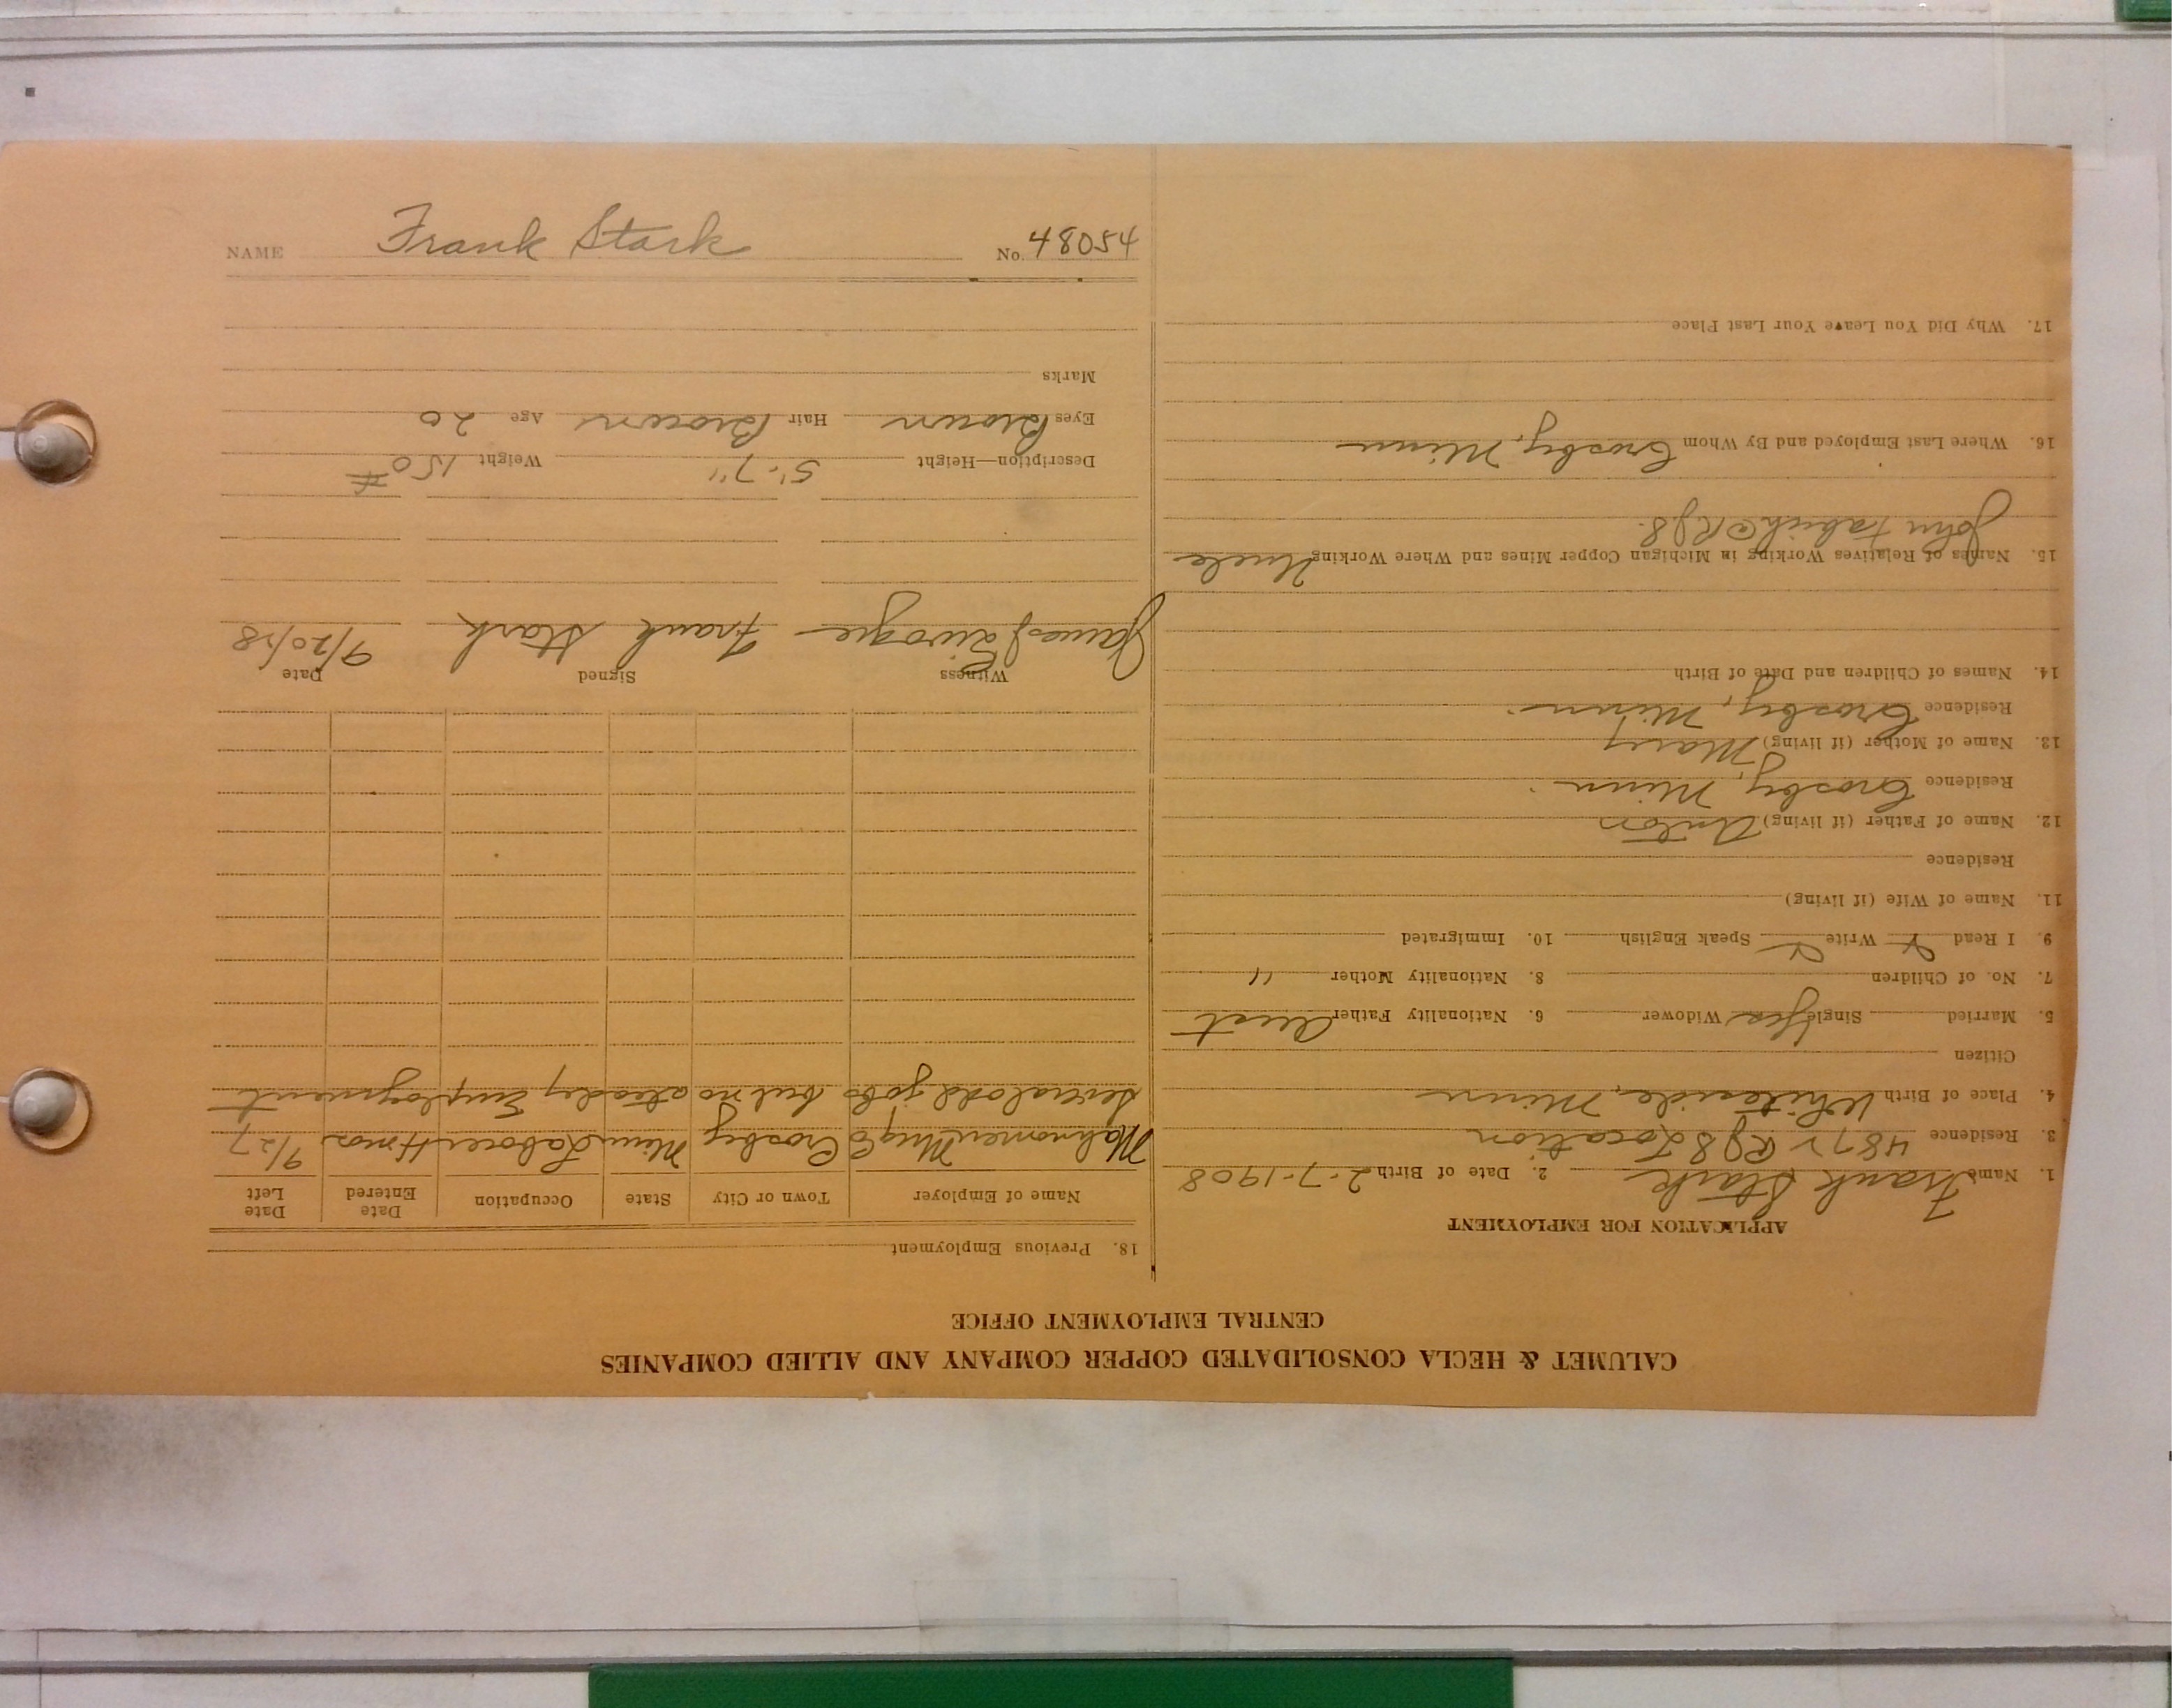 NAME Frank Stark No. 48054
CALUMET & HECLA CONSOLIDATED COPPER COMPANY AND ALLIED COMPANIES
CENTRAL EMPLOYMENT OFFICE
APPLICATION FOR EMPLOYMENT
1. Name Frank Stark 2. Date of Birth 2-7-1908
3. Residence 4872 Location
4. Place of Birth Whiteside, Minn
Citizen
5. Married Single Yes Widower 6. Nationality Father Aust
7. No. of Children 8. Nationality Mother "
9. I Read Write Speak English 10. Immigrated
11. Name of Wife (if living)
Residence
12. Name of Father (if living) Anton
Residence Crosby, Minn.
13. Name of Mother (if living) Mary
Residence Crosby, Minn.
14. Names of Children and Date of Birth
15. Names of Relatives Working in Michigan Copper Mines and Where Working Uncle
John
16. Where Last Employed and By Whom Crosby, Minn
17. Why Did You Leave Your Last Place
18. Previous Employment
Name of Employer Town or City State Occupation Date Entered Date Left
Mahnomen Mng Co Crosby Minn Laborer 4 mos 9/27
Several odd jobs but no steady Employment
Witness Signed Date
James Frank Stark 9/20/28
Description—Height 5'-7" Weight 150 #
Eyes Brown Hair Brown Age 20
Marks